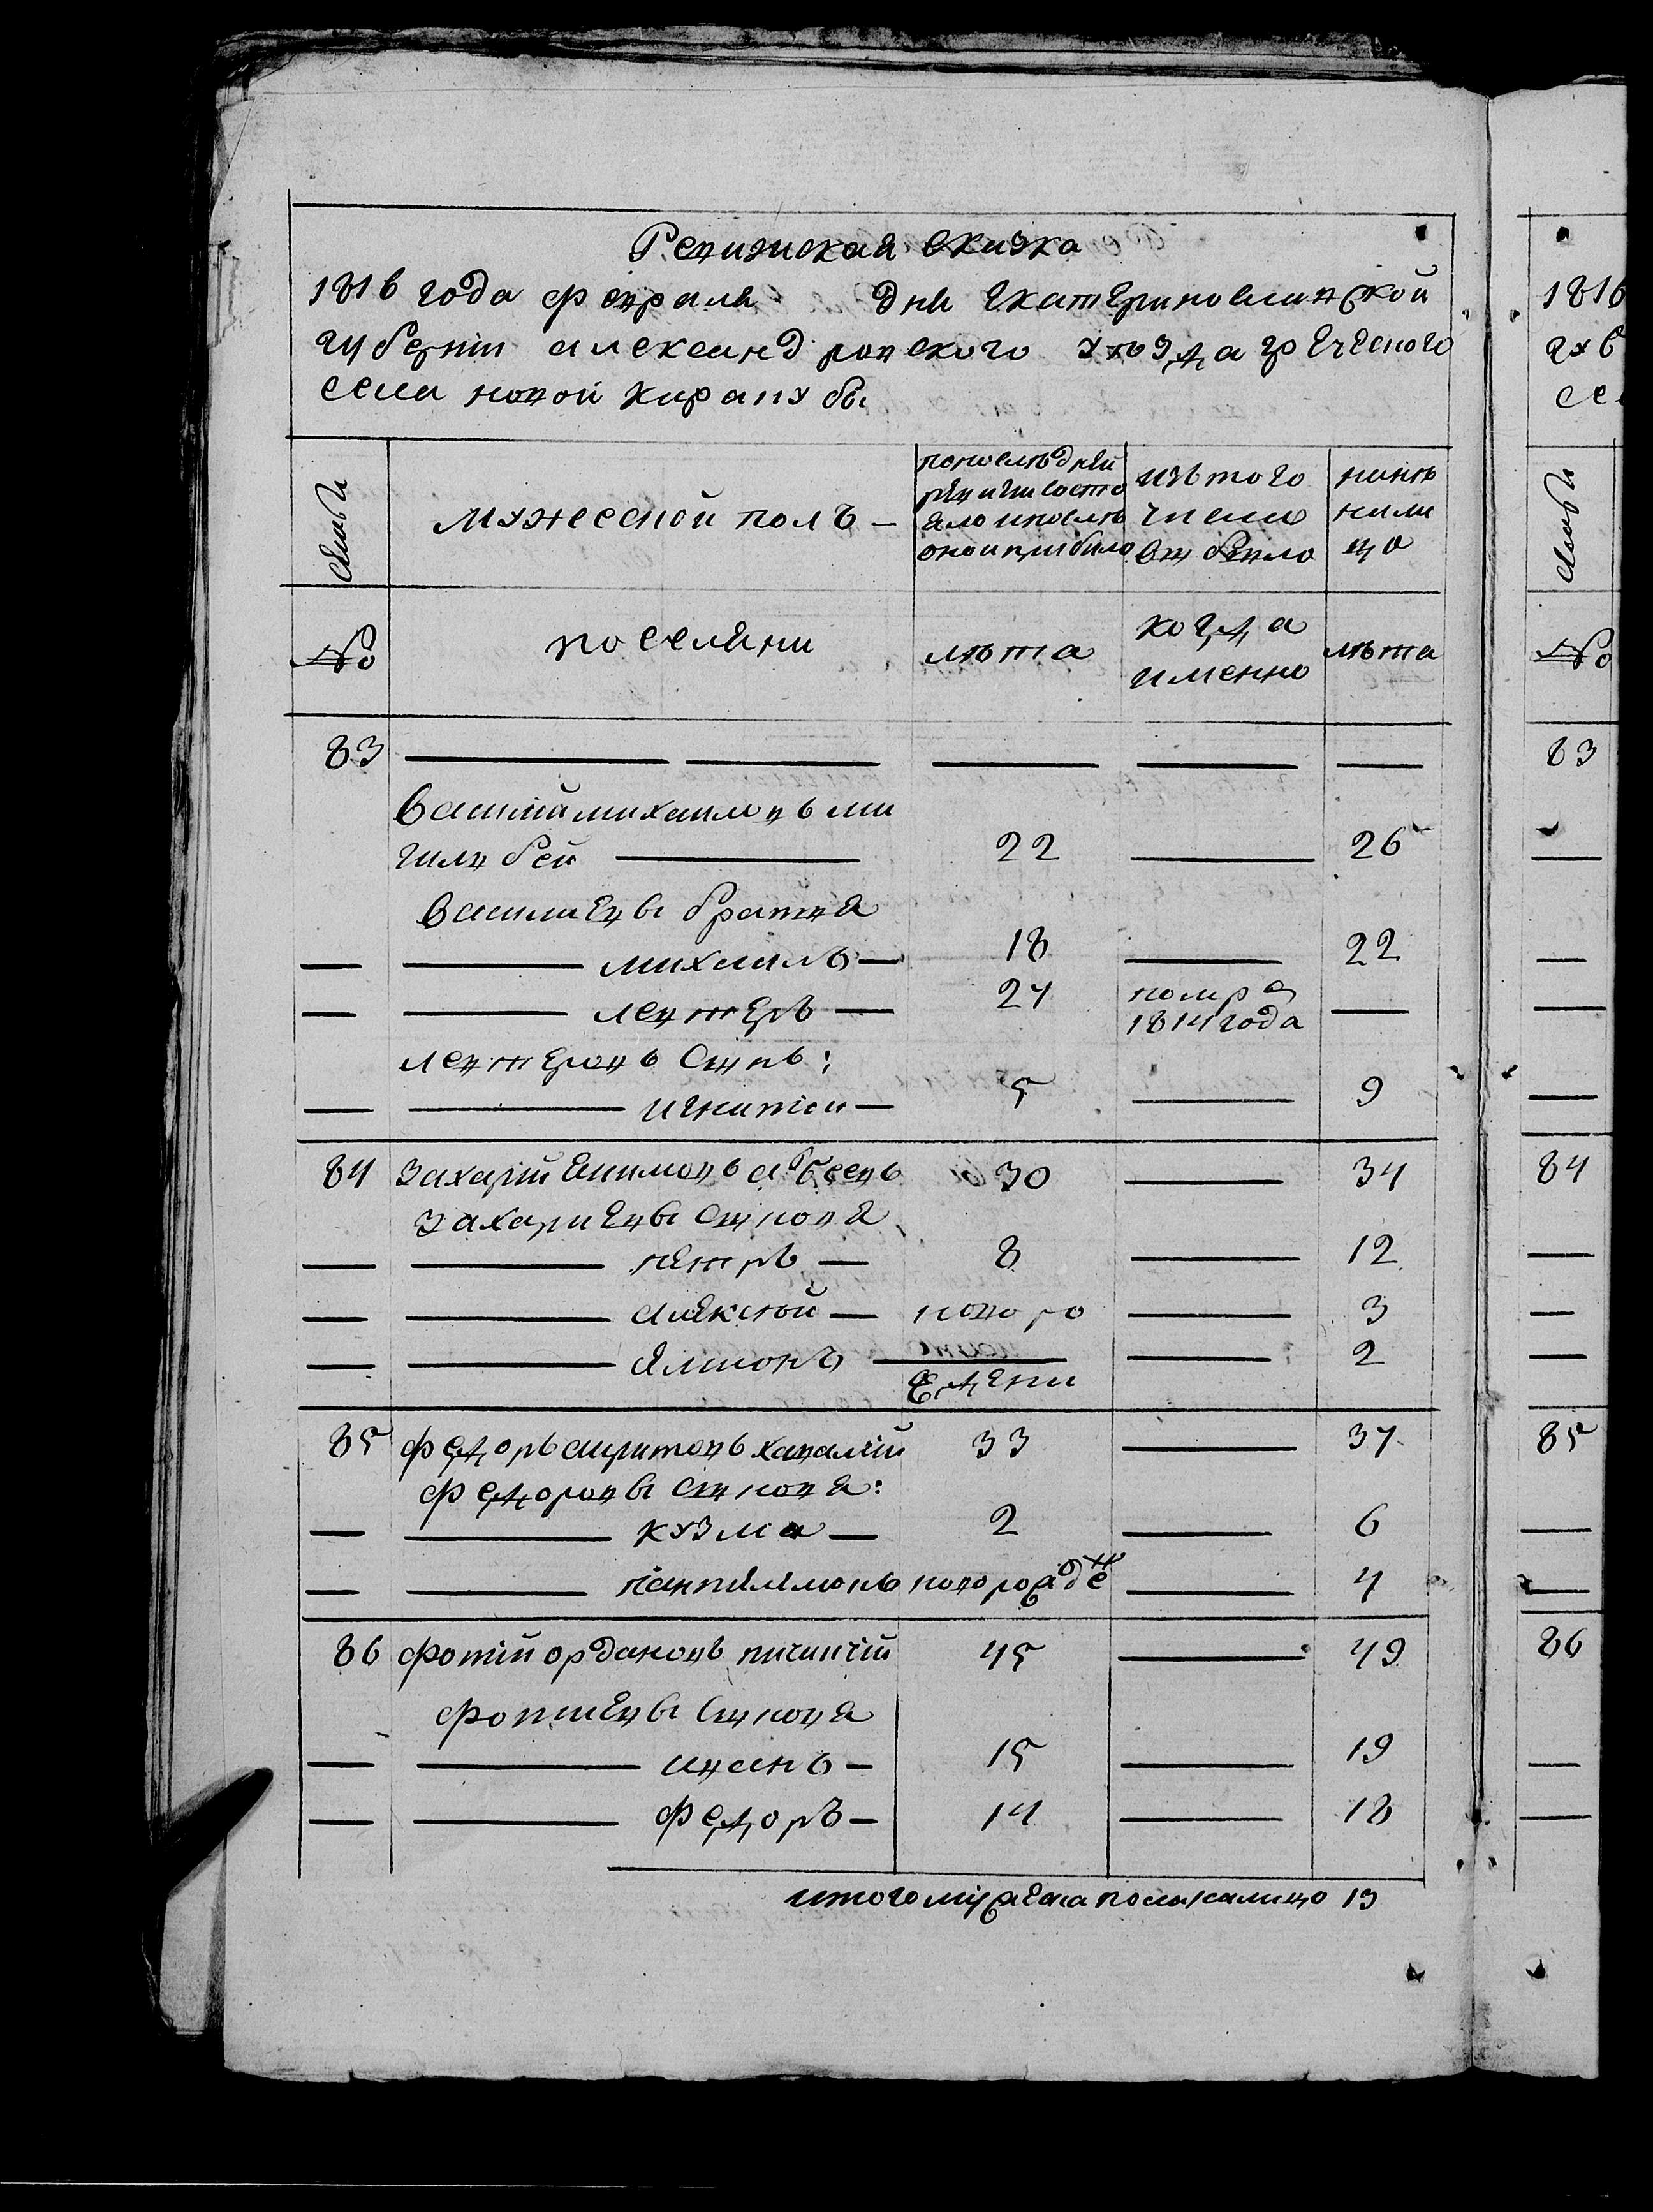 Ревижская скаzка
1816 года февраля дня Екатериновлавской
губернiи александровского уѣзда греческого
села новой каракубы
Семьи
мужеской полъ —
попослѣдней
ревизiи состо
яло ипослѣ
оной прибыло
изътого
числа
выбыло
нынѣ
нали
цо
№
поселяни
лѣта
когда
именно
лѣта
83
василiй михаиловъ ми
22 — 26
василиевы братья
— михаилъ — 18 — 22
— левтеръ — 24 помръ —
1814 года
левтеровъ сынъ:
— игнатiи — 5 — 9
84 захарiй 30 — 34
захариевы сыновя
— петръ — 8 — 12
— алексѣй — ново ро — 3
— ямионъ — 2
едени
85 федоръ харитовъ хавалчiй 33 — 37
федоровы сыновя:
— кузма — 2 — 6
— пантелемонъ новорожде н — 4
86 фотiй ордановъ пичинчiй 45 — 49
фотиевы сыновя
— иванъ — 15 — 19
— федоръ — 14 — 18
итого мужеска пола налицо 13
1816
губ
се
Семьи
№
83
84
85
86